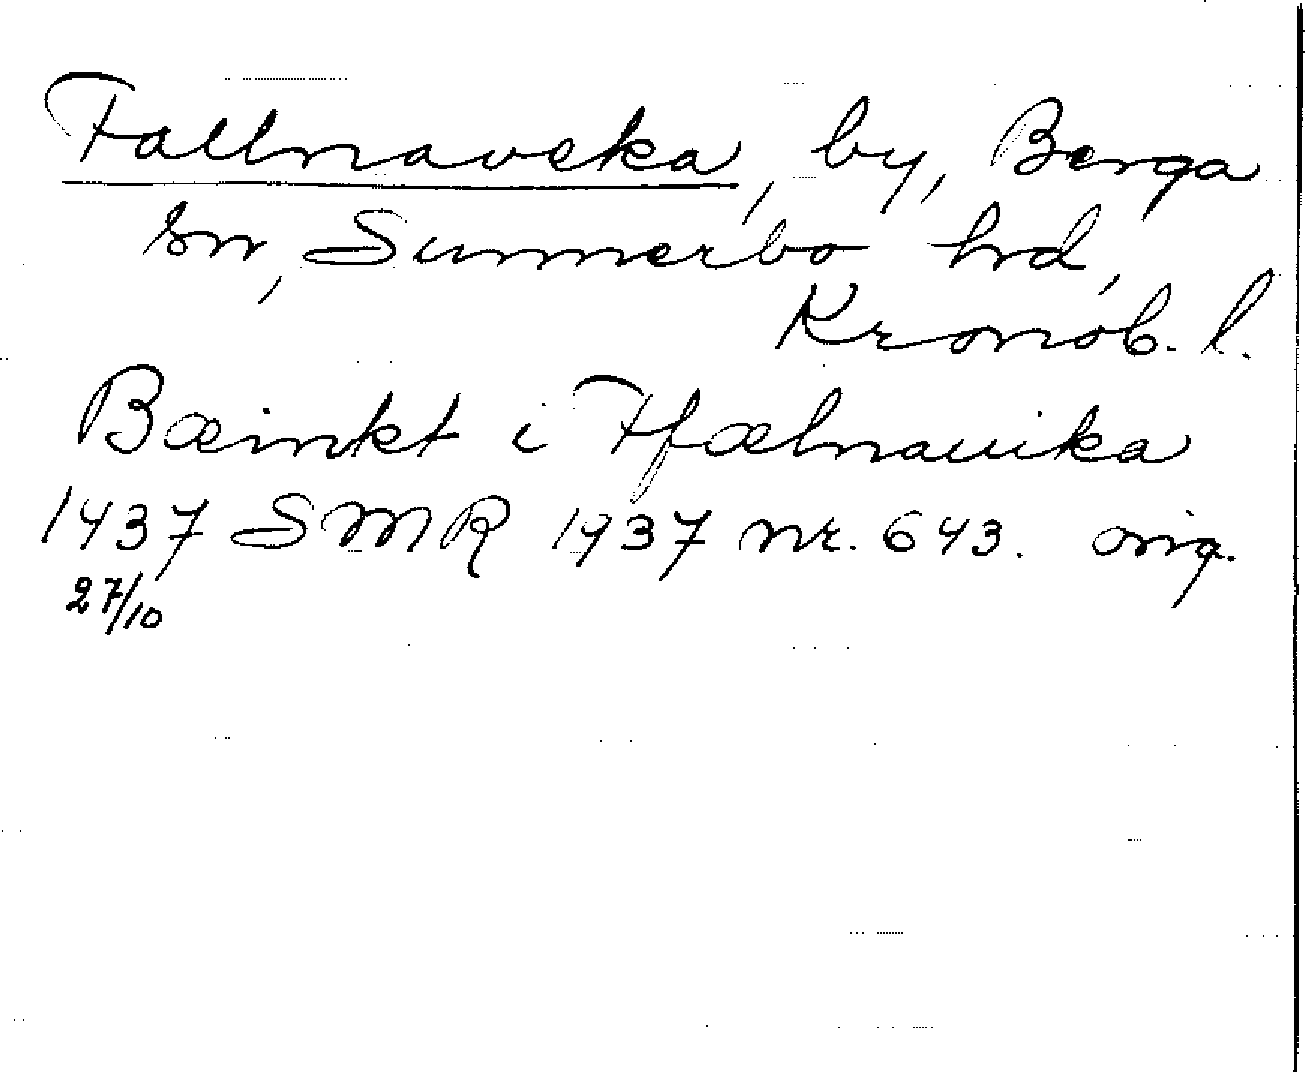 Fallnaveka, by, Berga
sn, Sunnerbo hrd,
Kronob. l.
Bæinkt i Ffælnauika
1437 SMR 1937 nr. 643. orig.
27/10